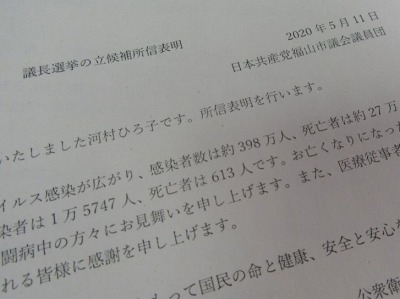 2020年5月11日
議長選挙の立候補所信表明
日本共産党福山市議会議員団
いたしました河村ひろ子です。所信表明を行います。
イルス感染が広がり、感染者数は約398万人、死亡者は約27万
染者は1万5747人、死亡者は613人です。お亡くなりになった
闘病中の方々にお見舞いを申し上げます。また、医療従事者
れる皆様に感謝を申し上げます。
もって国民の命と健康、安全と安心な
公衆衛